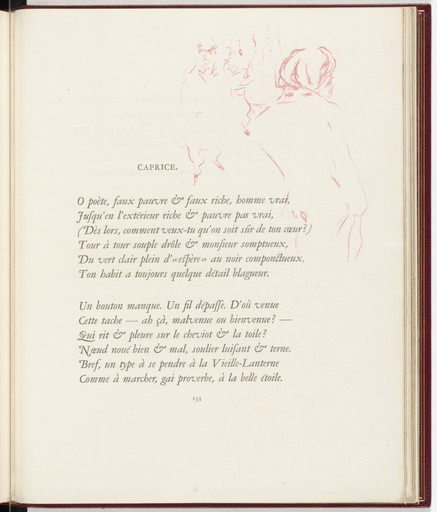 CAPRICE.
O poète, faux pauvre & faux riche, homme vrai,
Jusqu'en l'extérieur riche & pauvre pas vrai,
(Dès lors, comment veux-tu qu'on soit sûr de ton cœur?)
Tour à tour souple drôle & monsieur somptueux,
Du vert clair plein d'«espère» au noir componctueux,
Ton habit a toujours quelque détail blagueur.
Un bouton manque. Un fil dépasse. D'où venue
Cette tache — ah çà, malvenue ou bienvenue? —
Qui rit & pleure sur le cheviot & la toile?
Nœud noué bien & mal, soulier luisant & terne.
Bref, un type à se pendre à la Vieille-Lanterne
Comme à marcher, gai proverbe, à la belle étoile.
133